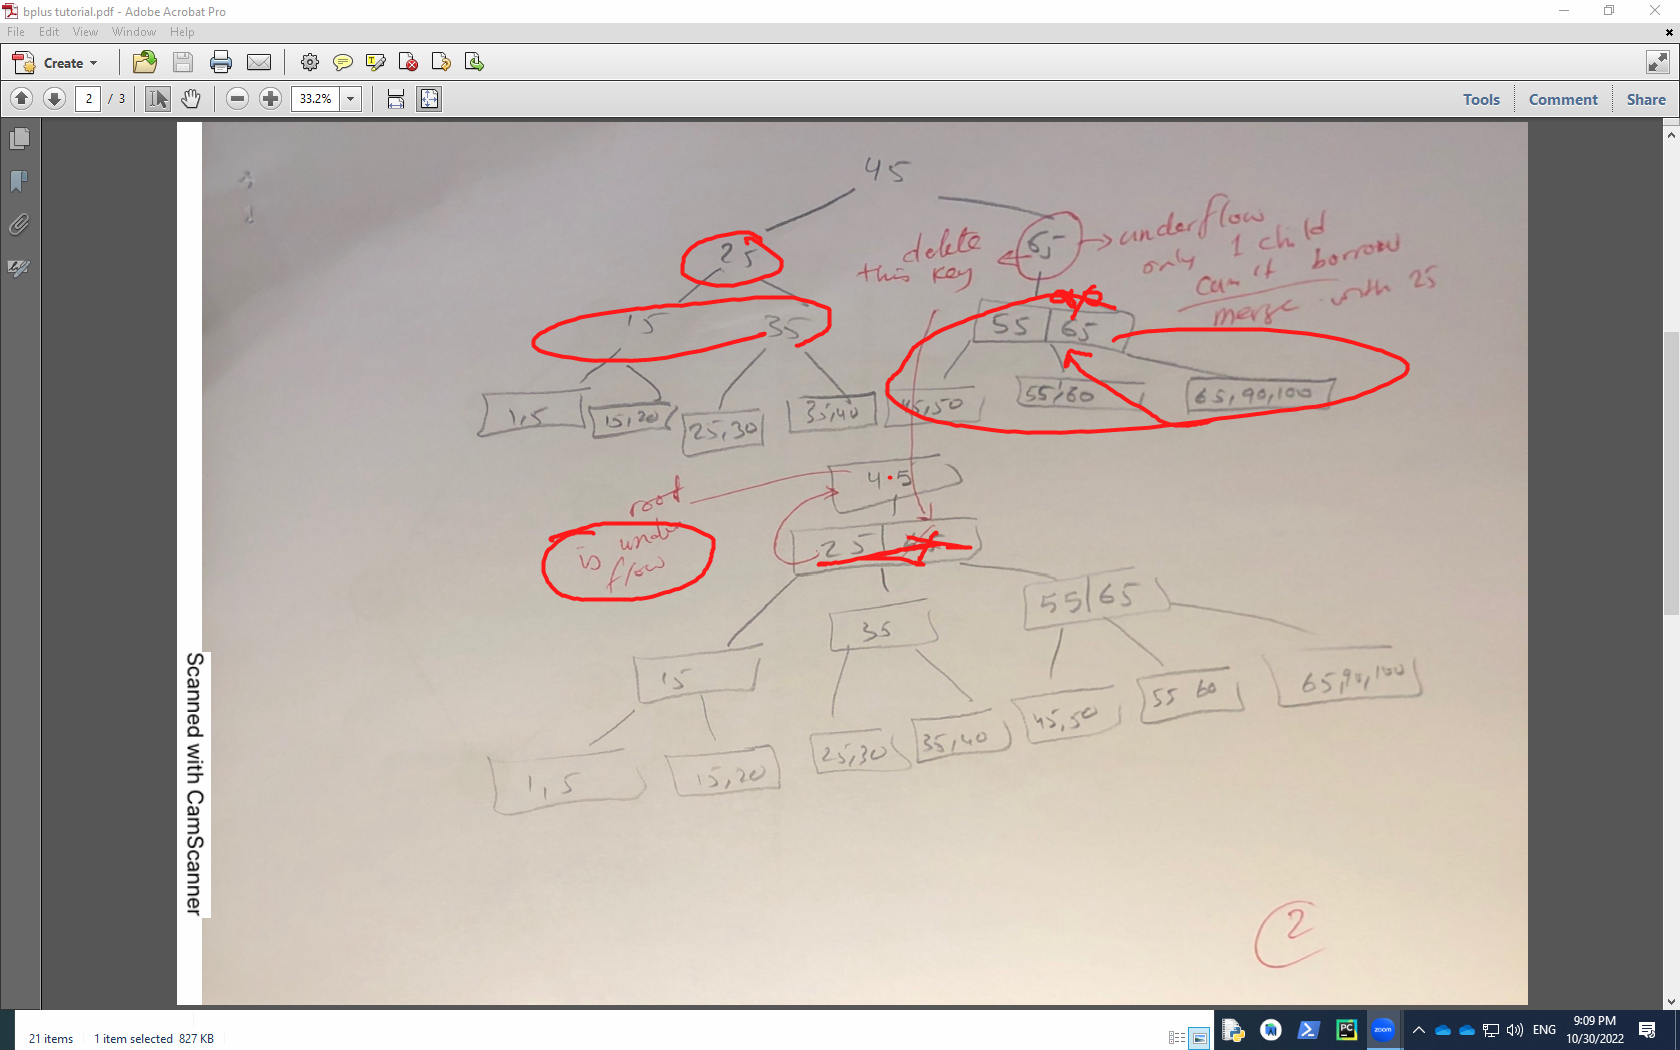 bplus tutorial.pdf - Adobe Acrobat Pro
File Edit View Window Help
Create
2 / 3 33.2% Tools Comment Share
45
25
delete
this key
65
underflow
only 1 child
can it borrow
merge with 25
15 35
55 65
1,5 15,20 25,30 35,40 45,50 55,60 65,90,100
root
is under
flow
45
25
35
55 65
15
1,5 15,20 25,30 35,40 45,50 55 60 65,90,100
2
Scanned with CamScanner
21 items 1 item selected 827 KB
PC zoom ENG 9:09 PM
10/30/2022